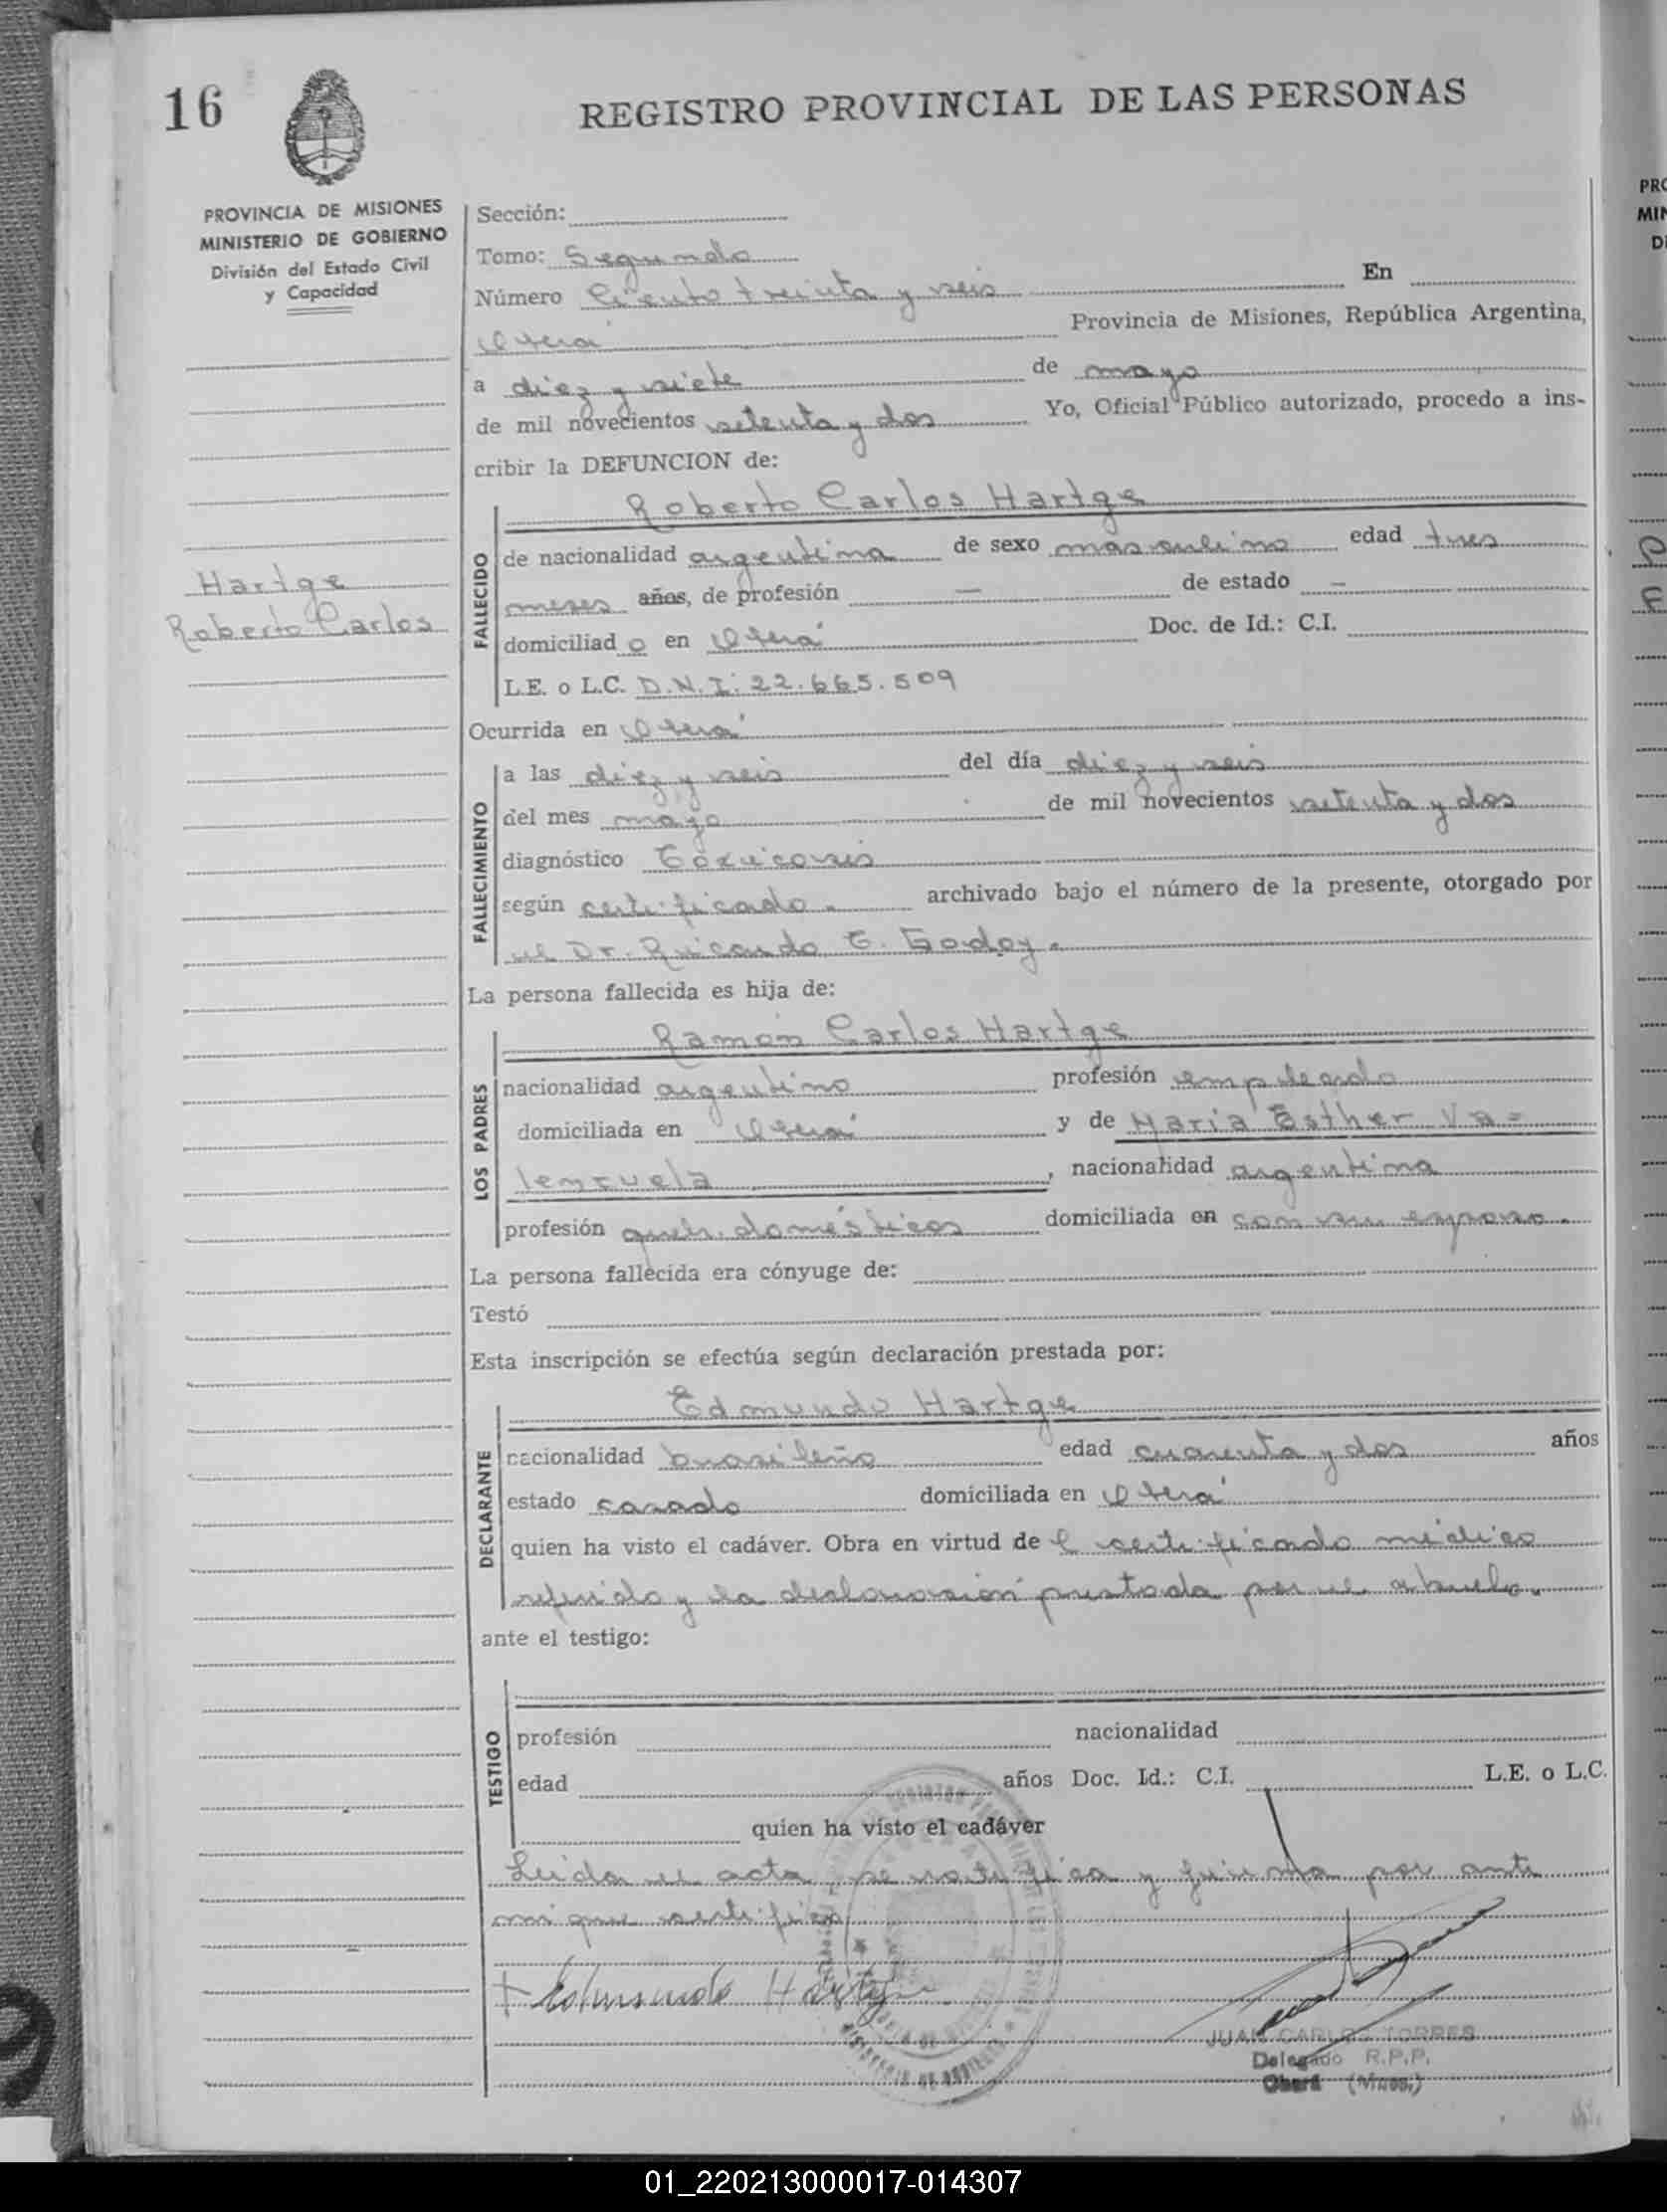 16
REGISTRO PROVINCIAL DE LAS PERSONAS
PROVINCIA DE MISIONES
MINISTERIO DE GOBIERNO
División del Estado Civil
y Capacidad
Hartge
Roberto Carlos
Sección:
Tomo: Segundo
Número Ciento treinta y seis En
Oberá Provincia de Misiones, República Argentina,
a diez y siete de mayo
de mil novecientos setenta y dos Yo, Oficial Público autorizado, procedo a ins-
cribir la DEFUNCION de:
FALLECIDO
Roberto Carlos Hartge
de nacionalidad argentina de sexo masculino edad tres
meses años, de profesión — de estado —
domiciliado en Oberá Doc. de Id.: C.I.
L.E. o L.C. D.N.I. 22.665.509
Ocurrida en Oberá
FALLECIMIENTO
a las diez y seis del día diez y seis
del mes mayo de mil novecientos setenta y dos
diagnóstico Toxicosis
según certificado. archivado bajo el número de la presente, otorgado por
el Dr. Ricardo E. Godoy.
La persona fallecida es hija de:
LOS PADRES
Ramón Carlos Hartge
nacionalidad argentino profesión empleado
domiciliada en Oberá y de María Esther Va=
lenzuela, nacionalidad argentina
profesión queh. domésticos domiciliada en con su esposo.
La persona fallecida era cónyuge de:
Testó
Esta inscripción se efectúa según declaración prestada por:
DECLARANTE
Edmundo Hartge
nacionalidad brasileño edad cuarenta y dos años
estado casado domiciliada en Oberá
quien ha visto el cadáver. Obra en virtud de l certificado médico
referido y la declaración prestada por el abuelo.
ante el testigo:
TESTIGO
profesión nacionalidad
edad años Doc. Id.: C.I. L.E. o L.C.
quien ha visto el cadáver
Leida el acta, se ratifica y firma por ante
mi que certifico
+ Edmundo Hartge
JUAN CARLOS TORRES
Delegado R.P.P.
Oberá (Mnes.)
PRO
MIN
01_220213000017-014307